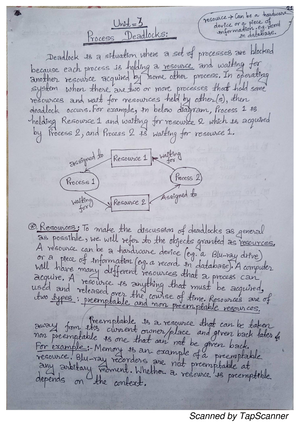 Unit-3
Process Deadlocks:
resource → Can be a hardware
device or a piece of
information eg. record
in database.
Deadlock is a situation where a set of processes are blocked
because each process is holding a resource and waiting for
another resource acquired by some other process. In operating
system when there are two or more processes that hold some
resources and wait for resources held by other(s), then
deadlock occurs. For example, in below diagram, Process 1 is
holding Resource 1 and waiting for resource 2 which is acquired
by Process 2, and Process 2 is waiting for resource 1.
Assigned to
Resource 1
waiting for
Process 1
Process 2
waiting for
Resource 2
Assigned to
Resources: To make the discussion of deadlocks as general
as possible, we will refer to the objects granted as resources.
A resource can be a hardware device (eg. a Blu-ray drive)
or a piece of information (eg. a record in database). A computer
will have many different resources that a process can
acquire. A resource is anything that must be acquired,
used and released over the course of time. Resources are of
two types: preemptable and non preemptable resources.
Preemptable is a resource that can be taken
away from its current owner/place and given back later &
non preemptable is one that can not be given back.
For example:- Memory is an example of a preemptable
resource. Blu-ray recorders are not preemptable at
any arbitrary moment. Whether a resource is preemptible
depends on the context.
Scanned by TapScanner